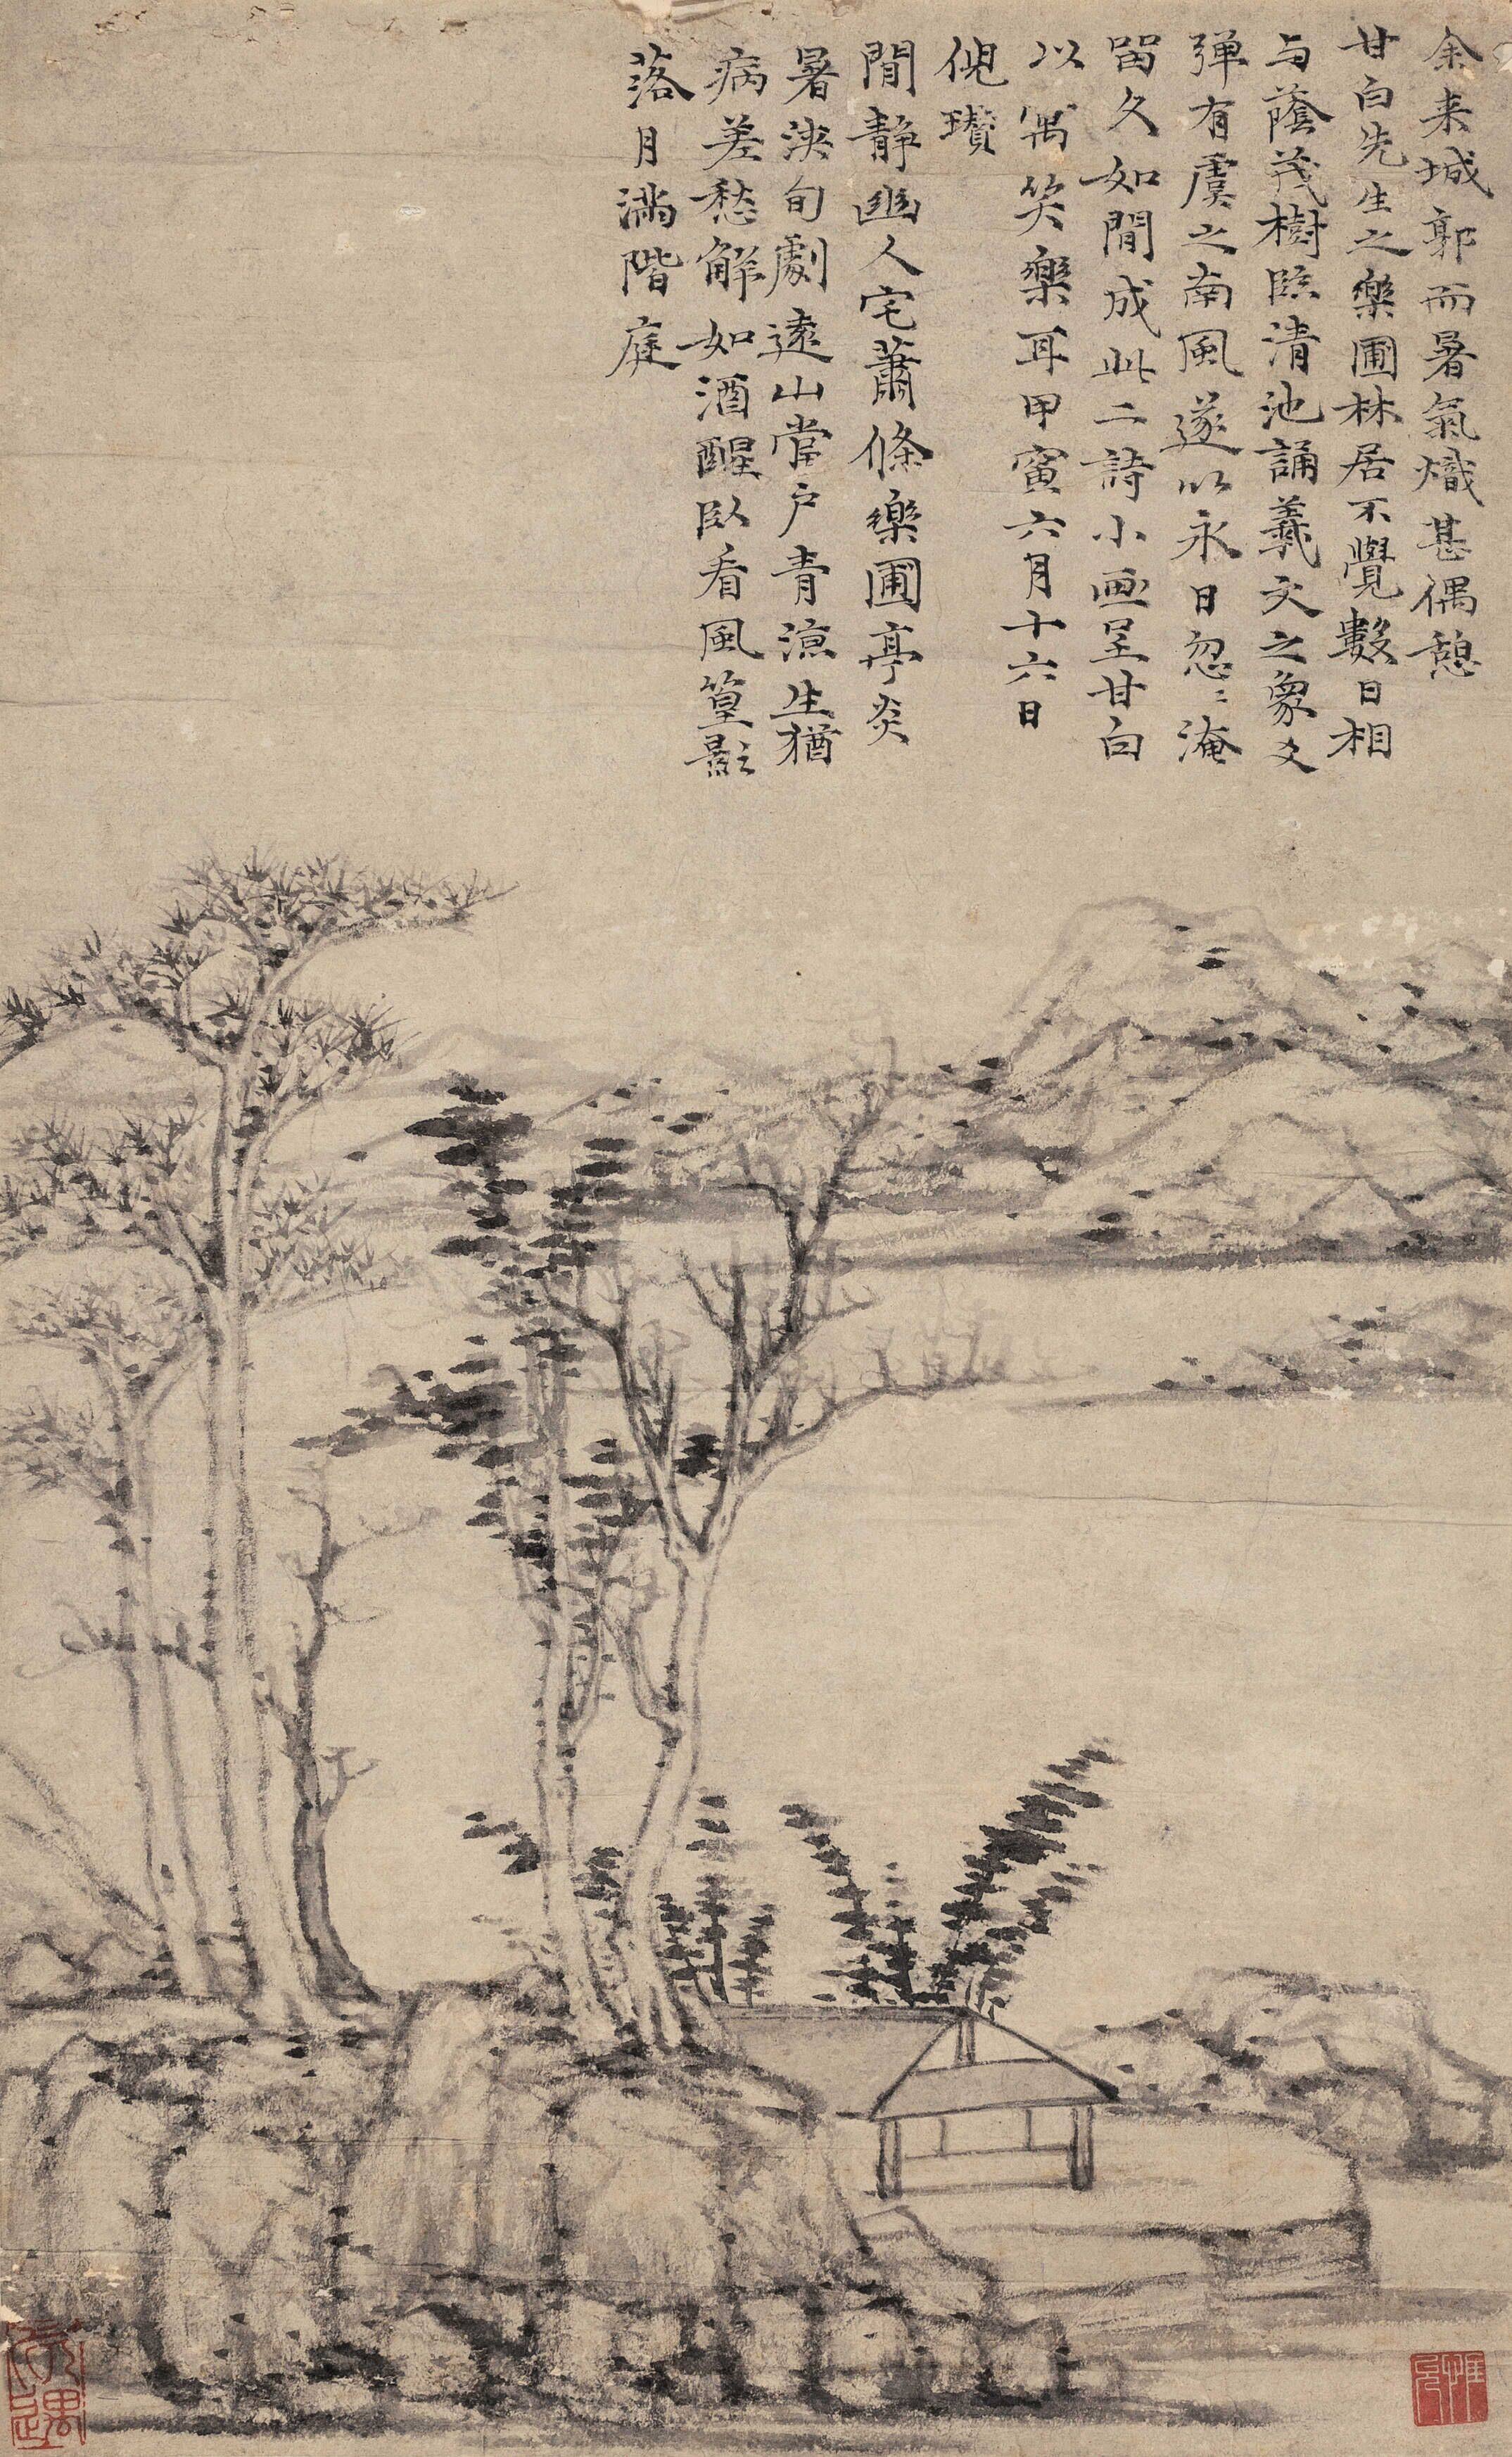 余来城郭而暑氣熾甚偶憩
甘白先生之樂圃林居不覺數日相
与蔭茂樹臨清池誦羲文之象爻
弹有虞之南風遂以永日忽〻淹
留久如閒成此二詩小画呈甘白
以寓笑樂耳甲寅六月十六日
倪瓚
閒静幽人宅蕭條樂圃亭炎
暑浹旬劇遠山當户青凉生猶
病差愁解如酒醒臥看風篁影
落月滿階庭